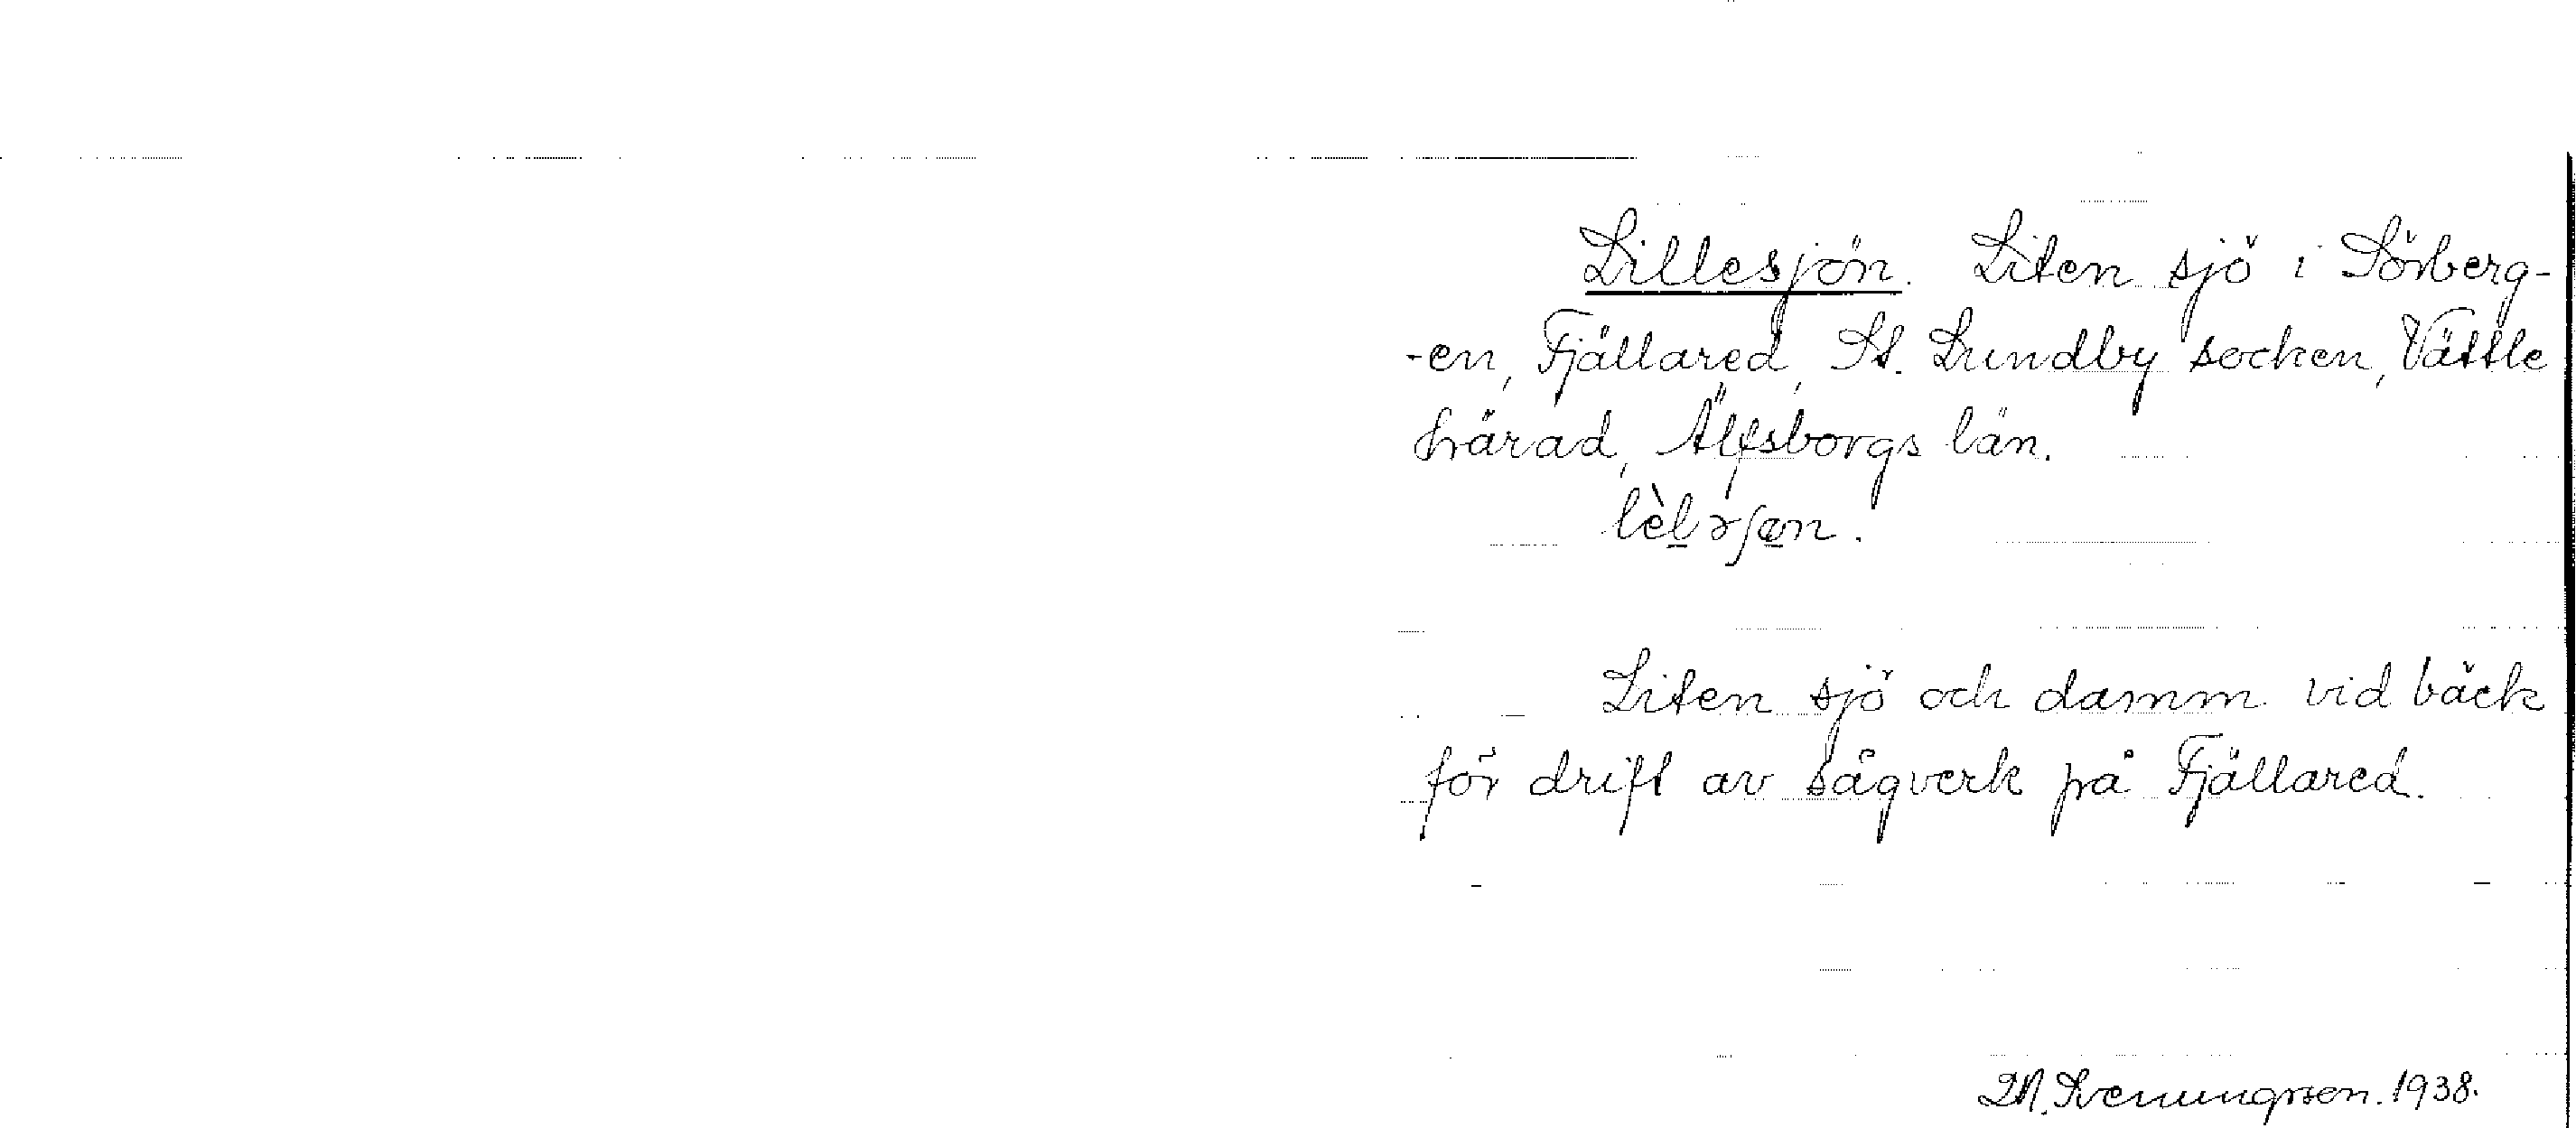 Lillesjön. Liten sjö i Sörberg-
-en, Fjällared, St. Lundby socken, Vättle
härad, Älfsborgs län.
Liten sjö och damm vid bäck
för drift av sågverk på Fjällared.
1938.